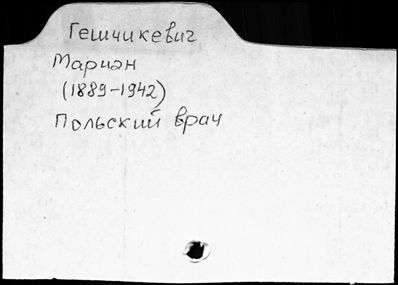 Гешчикевич
Мариэн
(1889-1942)
Польский врач